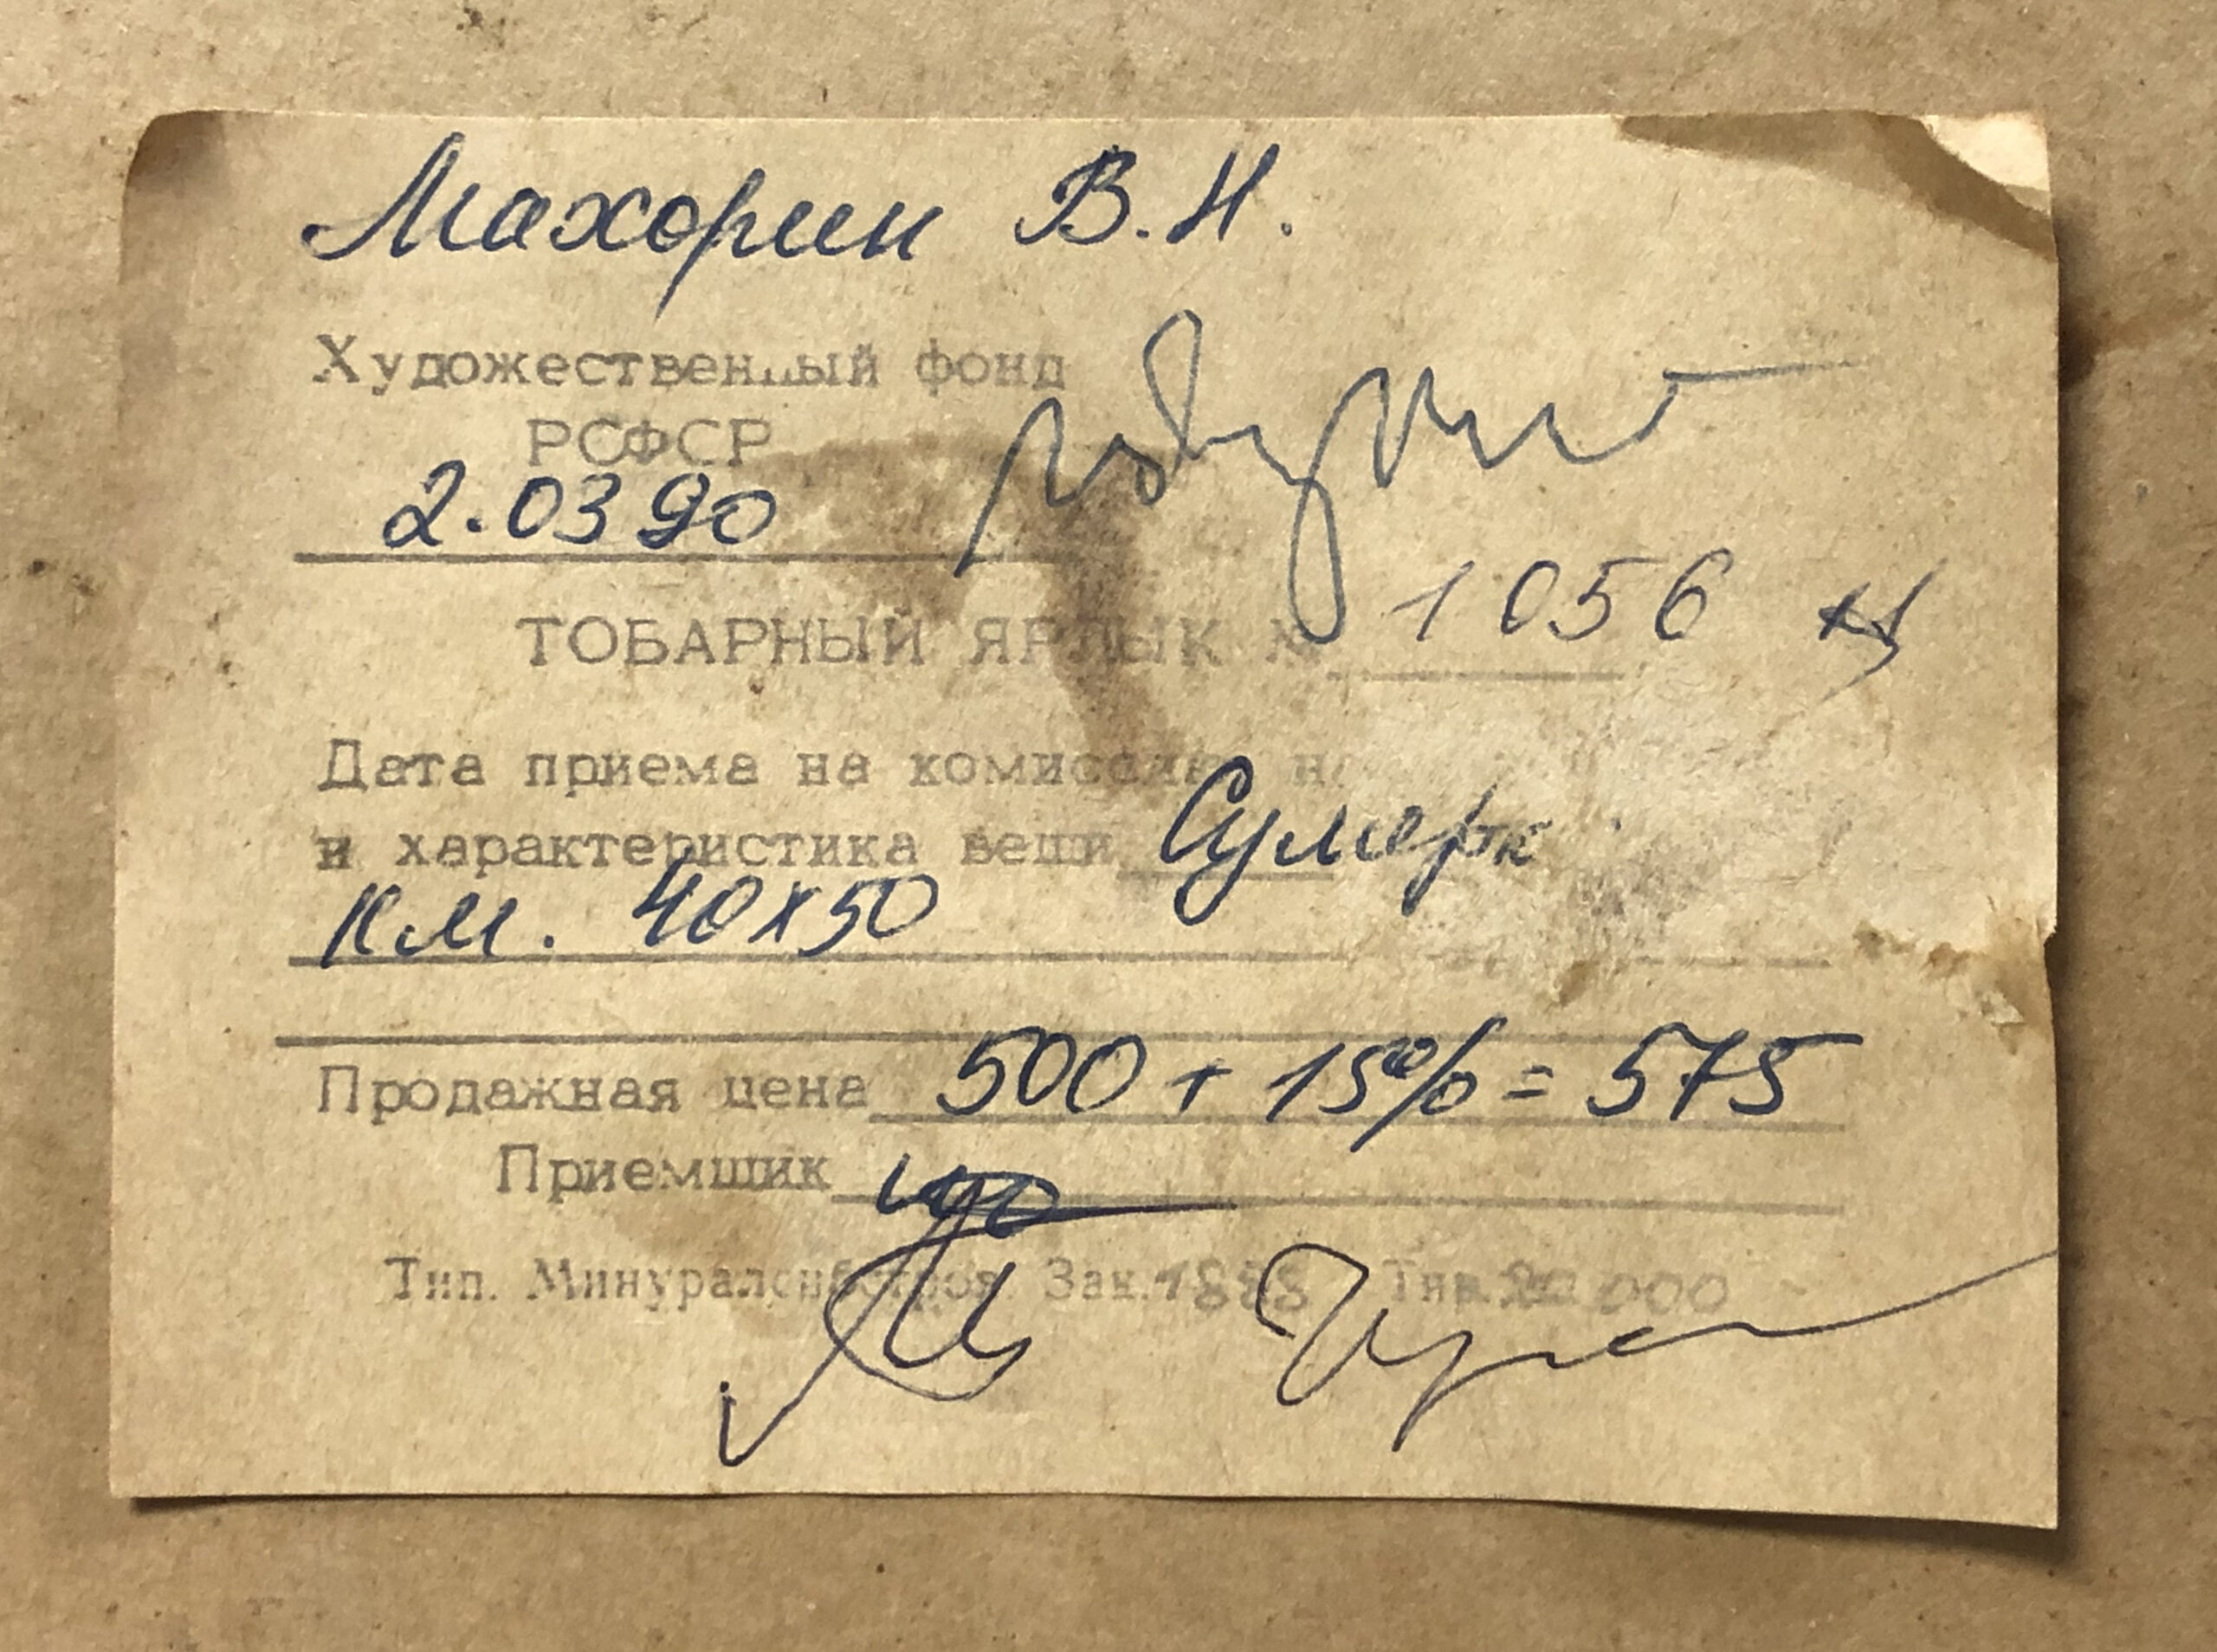 Махорин В.Н.
Художественный фонд
РСФСР
2.03 90
ТОВАРНЫЙ ЯРЛЫК № 1056
Дата приема на комиссию
и характеристика вещи Сумерк
к.м. 40х50
Продажная цена 500 + 15% = 575
Приемщик
Тип. Минуралсибстроя Зак. 1888 Тир. 000